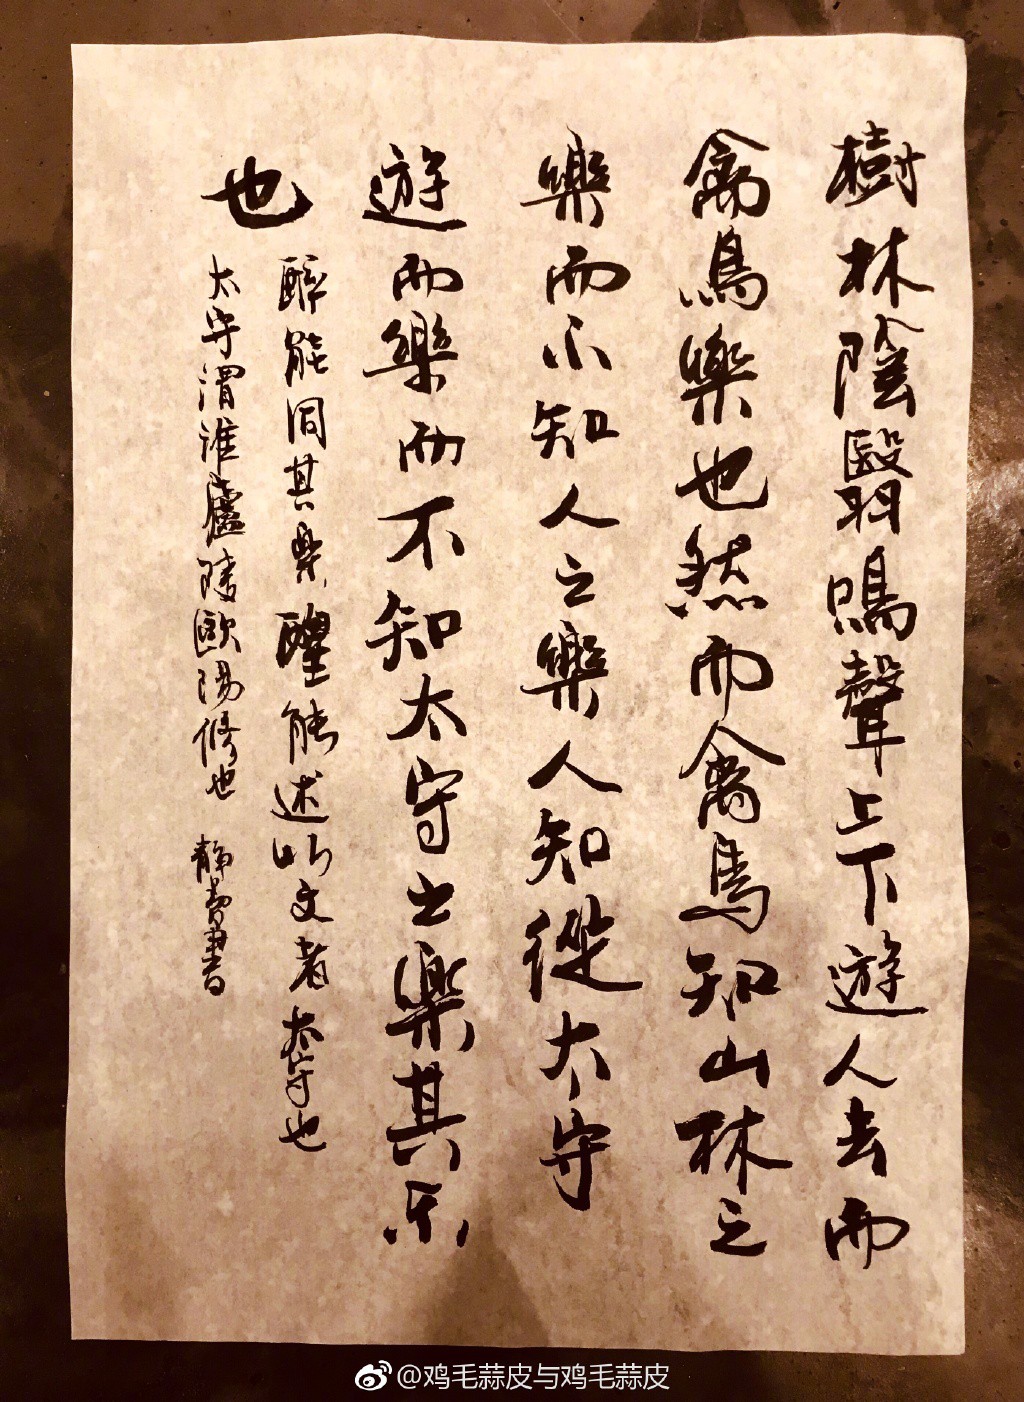 樹林陰翳鳴聲上下遊人去而
禽鳥樂也然而禽鳥知山林之
樂而不知人之樂人知從太守
遊而樂而不知太守之樂其乐
也
醉能同其樂醒能述以文者太守也
太守谓谁廬陵歐陽修也
靜書
@鸡毛蒜皮与鸡毛蒜皮